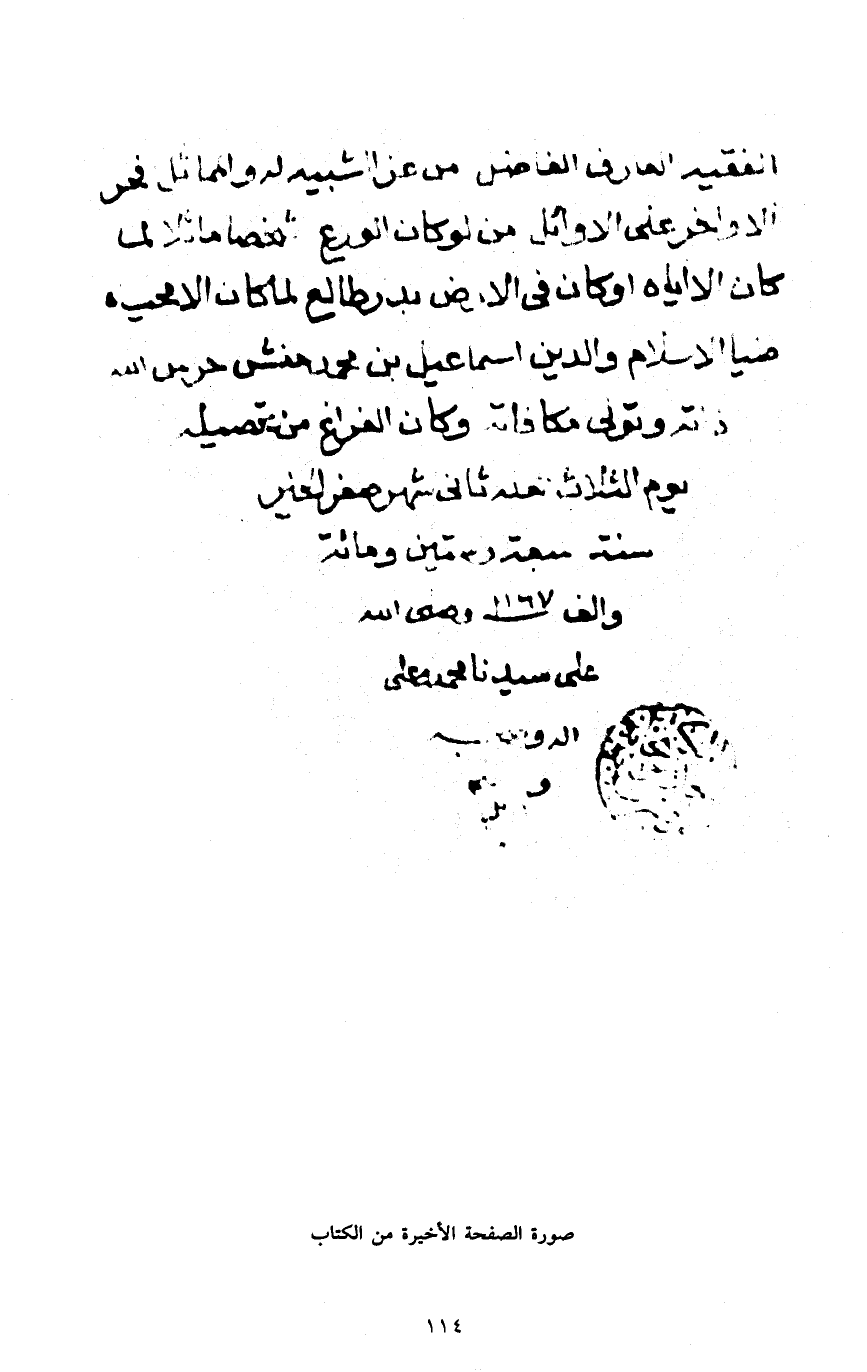 الفقيه العارف الفاضل من عز الشبيه له والمماثل فخر
الاواخر على الاوائل من لو كان الورع شخصا ماثلا لما
كان الا اياه او كان فى الارض بدر طالع لما كان الا محب
ضيا الاسلام والدين اسماعيل بن محمد حنش حرس الله
ذاته وتولى مكافاته وكان الفراغ من تحصيله
يوم الثلاث ثانى شهر صفر الخير
سنة سبعة وستين ومائة
والف ١١٦٧ وصلى الله
على سيدنا محمد وعلى
اله وصحبه
و
صورة الصفحة الأخيرة من الكتاب
١١٤